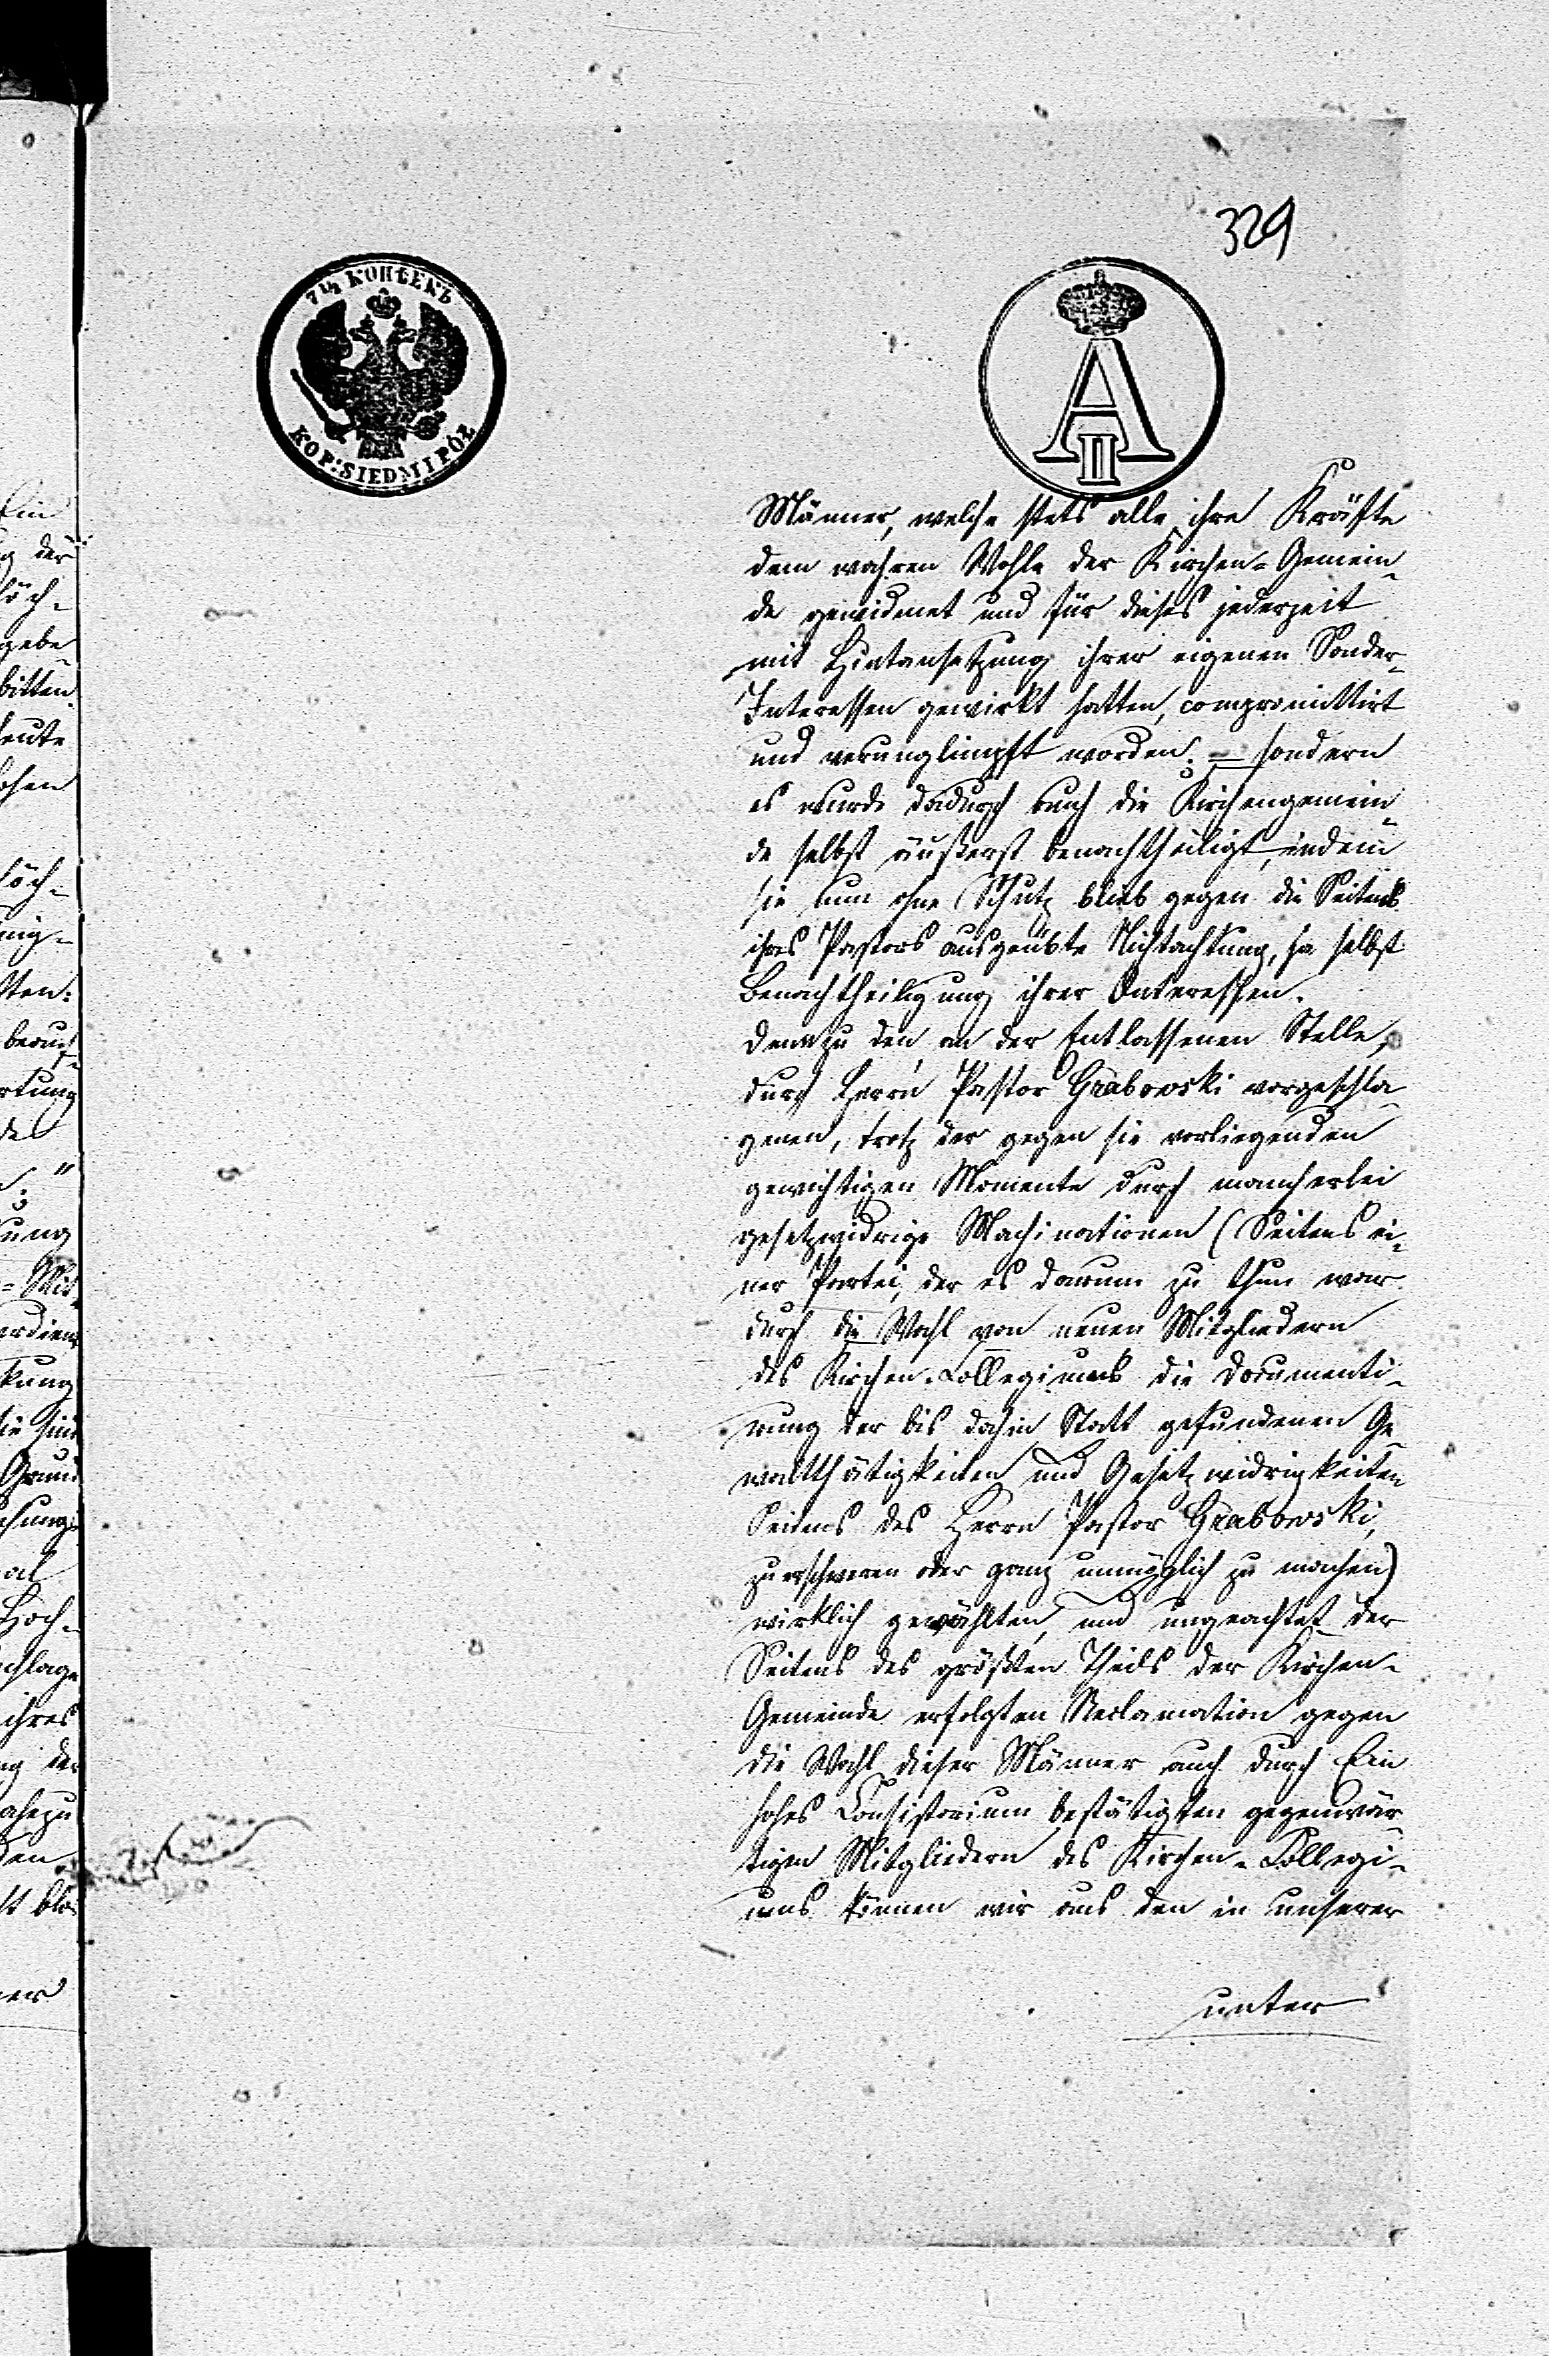 329
7½ КОПѢЕКЪ
KOP: SIEDM I PÓŁ
A
II
Männer, welche stets alle ihre Kräfte
dem wahren Wohle der Kirchen-Gemein-
de gewidmet und für dieses jederzeit
mit Hintansetzung ihrer eigenen Sonder-
Interessen gewirkt hatten, compromittirt
und verunglimpft worden; – sondern
es wurde dadurch auch die Kirchengemein-
de selbst äußerst benachtheiligt, indem
sie nun ohne Schutz blieb gegen die Seitens
ihres Pastors ausgeübte Nichtachtung, ja selbst
Benachtheiligung ihrer Interessen.
Denn zu den an der Entlassenen Stelle,
durch Herrn Pastor Grabowski vorgeschla-
genen, trotz der gegen sie vorliegenden
gewichtigen Momente durch mancherlei
gesetzwidrige Machinationen (Seitens ei-
ner Partei, der es darum zu thun war
durch die Wahl von neuen Mitgliedern
des Kirchen-Collegiums die Documenti-
rung der bis dahin Statt gefundenen Ge-
waltthätigkeiten und Gesetzwidrigkeiten
Seitens des Herrn Pastor Grabowski,
zu erschweren oder ganz unmöglich zu machen)
wirklich gewählten, und ungeachtet der
Seitens des größten Theils der Kirchen-
Gemeinde erfolgten Reclamation gegen
die Wahl dieser Männer auch durch Ein
hohes Consistorium bestätigten gegenwär-
tigen Mitgliedern des Kirchen-Collegi-
ums können wir aus den in unserer
unter